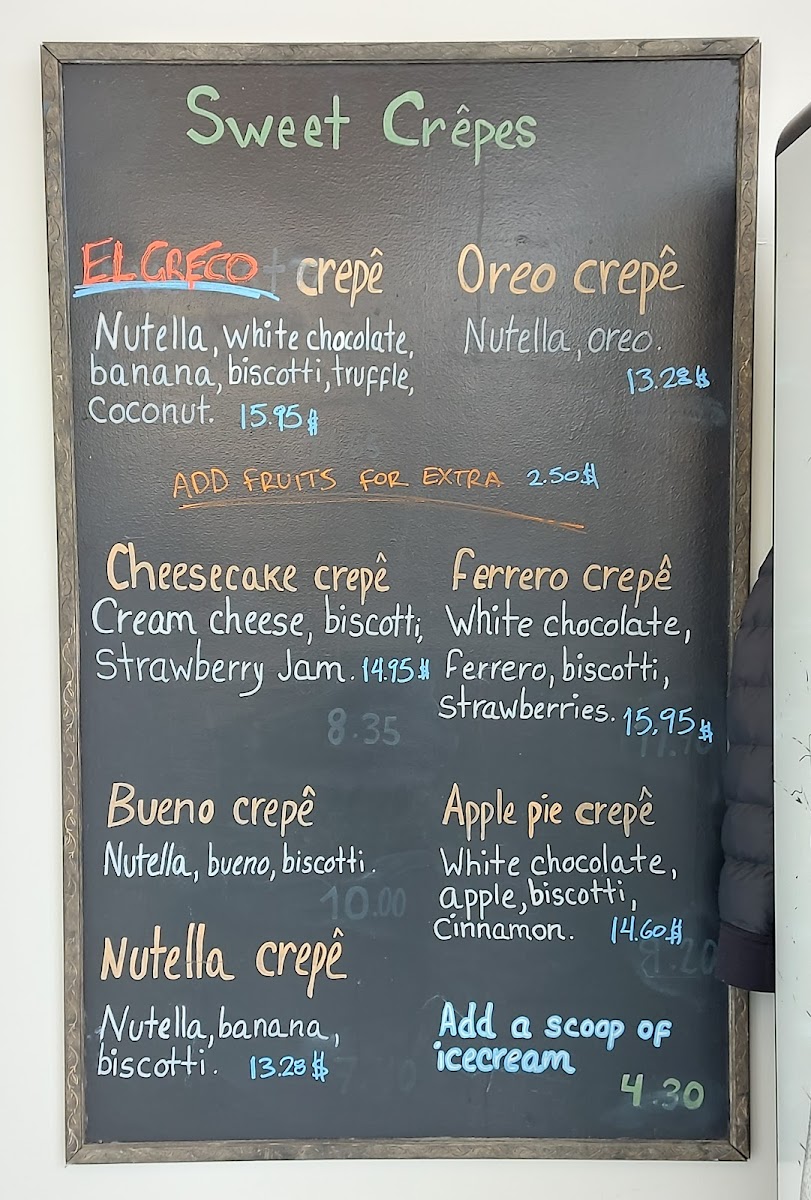 Sweet Crêpes
EL GRECO crepê
Nutella, white chocolate,
banana, biscotti, truffle,
Coconut. 15.95$
Oreo crepê
Nutella, oreo.
13.28$
ADD FRUITS FOR EXTRA 2.50$
Cheesecake crepê
Cream cheese, biscotti,
Strawberry Jam. 14.95$
8.35
Ferrero crepê
White chocolate,
Ferrero, biscotti,
Strawberries. 15,95$
Bueno crepê
Nutella, bueno, biscotti
10.00
Apple pie crepê
White chocolate,
apple, biscotti,
Cinnamon. 14.60$
8.20
Nutella crepê
Nutella, banana,
biscotti. 13.28$
Add a scoop of
icecream
4.30